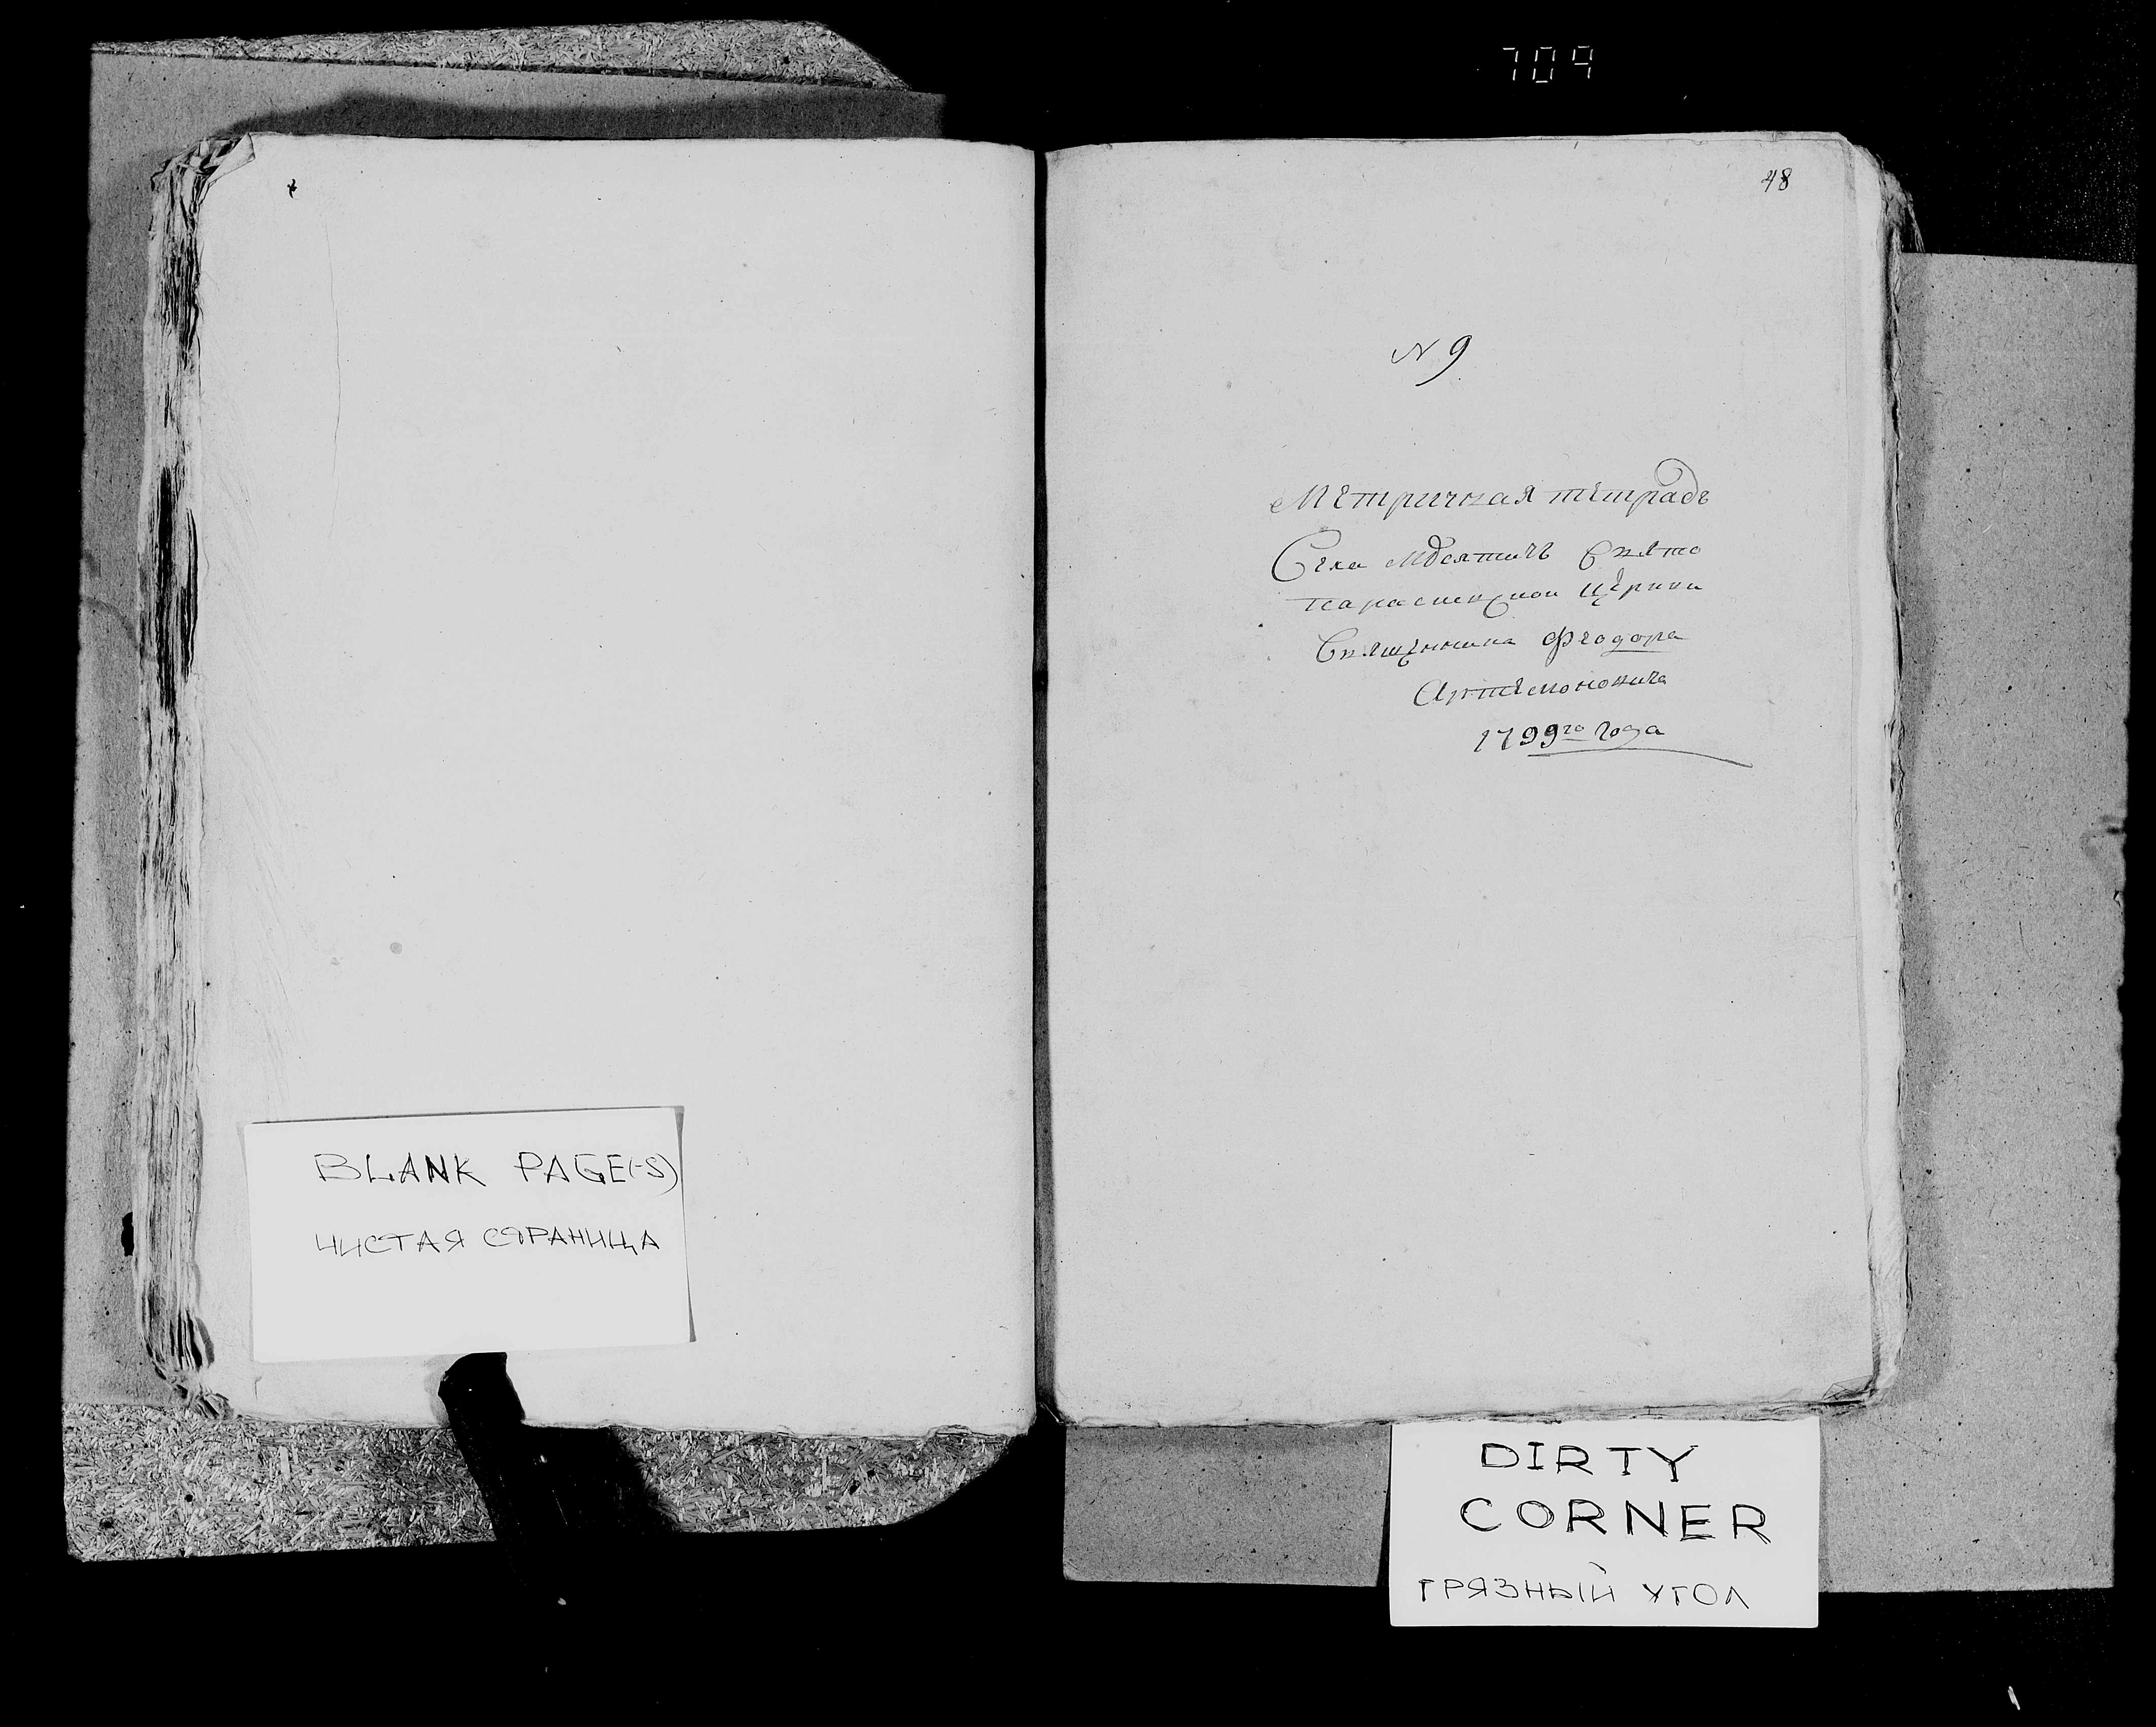 709
48
N 9
Метричная тетрадь
Села Мдсятичъ Свято
параскевской Церкви
Священника Феодора
Артемоновича
1799го года
BLANK PAGE(-S)
ЧИСТАЯ СТРАНИЦА
DIRTY
CORNER
ГРЯЗНЫЙ УГОЛ